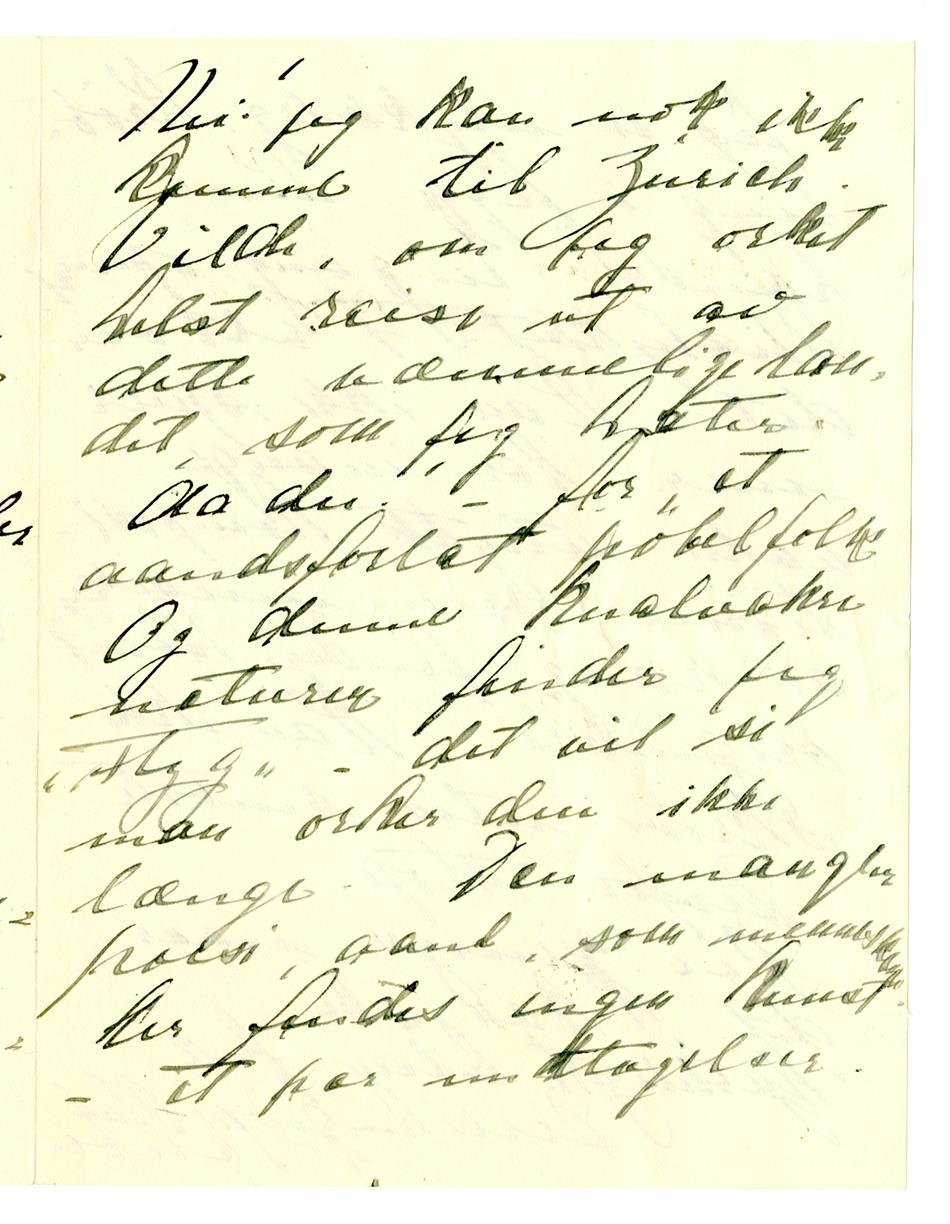 Nei jeg kan nok ikke
komme til Zürich.
Vilde, om jeg orket
helst reise ut av
dette væmmelige lan-
det, som jeg hater.
for „et
aandsforlat pøbelfolk
Og denne knalvakre
naturen finder jeg
„styg“ - det vil si
man orker den ikke
længe. Den mangler
poesi, aand, som menneskene.
Her findes ingen kunst.
- et par undtagelser.